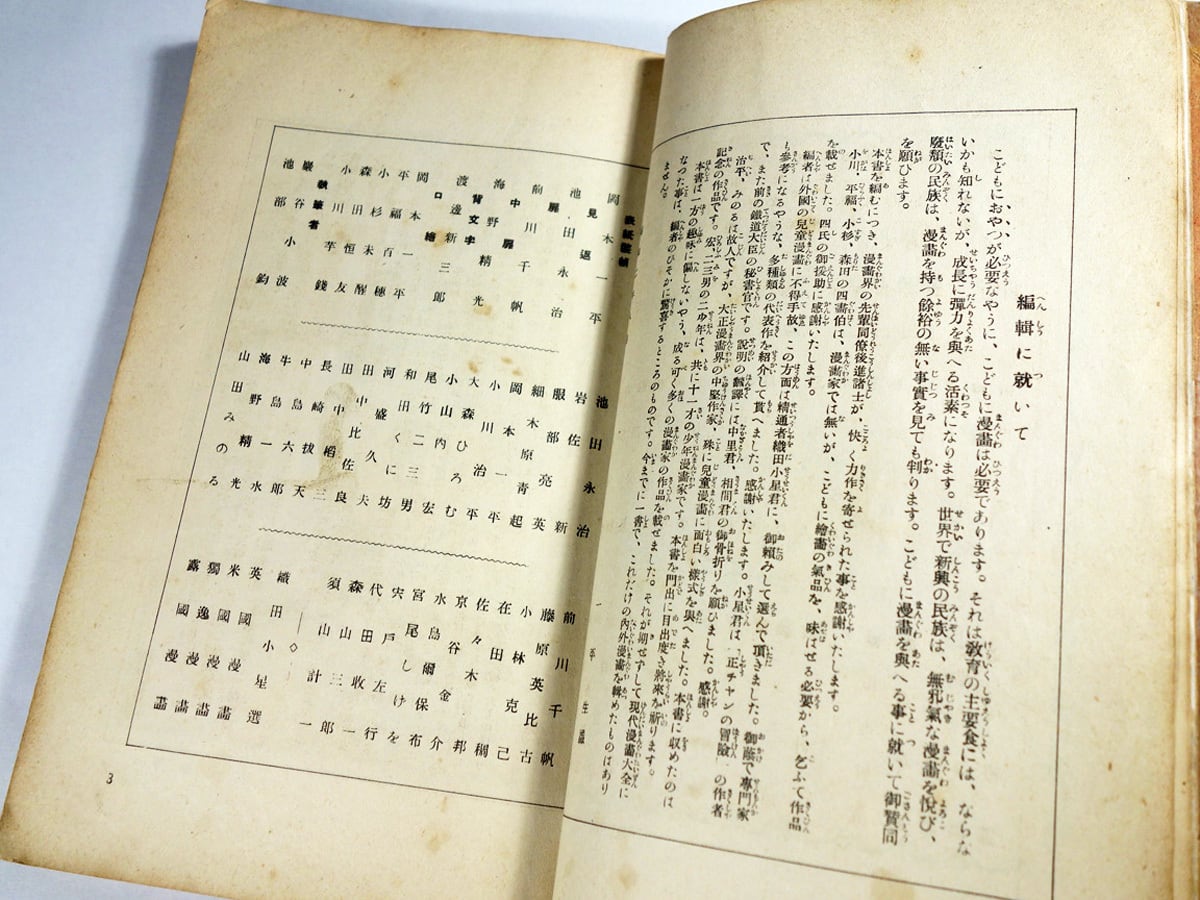 編輯に就いて
こどもにおやつが必要なやうに、こどもに漫畫は必要であります。それは敎育の主要食には、ならな
いかも知れないが、成長に彈力を與へる活素になります。世界で新興の民族は、無邪氣な漫畫を悅び、
廢頽の民族は、漫畫を持つ餘裕の無い事實を見ても判ります。こどもに漫畫を與へる事に就いて御贊同
を願ひます。
本書を編むにつき、漫畫界の先輩同僚後進諸士が、快く力作を寄せられた事を感謝いたします。
小川、平福、小杉、森田の四畫伯は、漫畫家では無いが、こどもに繪畫の氣品を、味はせる必要から、乞ふて作品
を載せました。四氏の御援助に感謝いたします。
編者は外國の兒童漫畫に不得手故、この方面は精通者織田小星君に、御賴みして選んで頂きました。御蔭で專門家
も參考になるやうな、多種類の代表作を紹介して貰へました。感謝いたします。小星君は「正チャンの冒險」の作者
で、また前の鐵道大臣の秘書官です。說明の飜譯には中里君、相間君の御骨折りを願ひました。感謝。
治平、みのるは故人ですが、大正漫畫界の中堅作家、殊に兒童漫畫に面白い樣式を與へました。本書に收めたのは
記念の作品です。宏、二三男の二少年は、共に十一才の少年漫畫家です。本書を門出に目出度き將來を祈ります。
本書は一方の趣味に偏しないやう、成る可く多くの漫畫家の作品を載せました。それが期せずして現代漫畫大全に
なつた事は、編者のひそかに驚喜するところのものです。今までに一書で、これだけの內外漫畫を輯めたものはあり
ません。
表紙裝幀
岡本一平
見返
池田永治
扉
前川千帆
中扉
海野精光
背文字
渡邊新三郎
口繪
岡本一平
平福百穗
小杉未醒
森田恒友
小川芋錢
執筆者
巖谷小波
池部鈞
池田永治
岩佐新
服部亮英
細木原青起
岡本一平
小川治平
大森ひろむ
小山內宏
尾竹二三男
和田くに坊
河盛久夫
田中比佐良
長崎拔天
中島六郎
牛島一水
海野精光
山田みのる
前川千帆
藤原英比古
小林克己
在田稠
佐々木邦
京谷金介
水島爾保布
宮尾しげを
宍戶左行
代田收一
森山三郎
須山計一
織田小星選
英國漫畫
米國漫畫
獨逸漫畫
露國漫畫
3